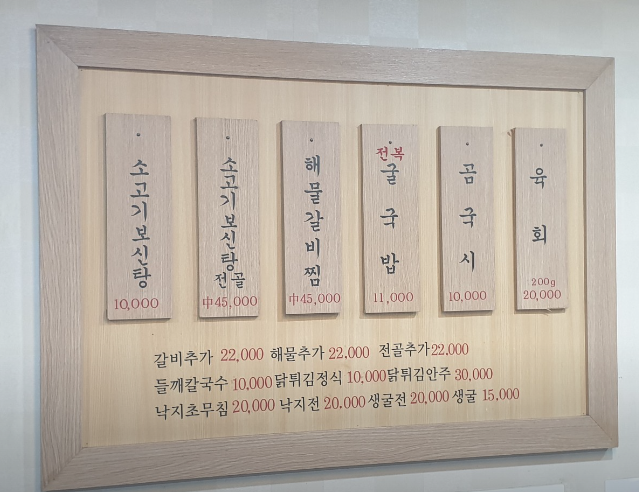 소고기보신탕
10,000
소고기보신탕
전골
中45,000
해물갈비찜
中45,000
전복
굴국밥
11,000
곰국시
10,000
육회
200g
20,000
갈비추가 22,000 해물추가 22.000 전골추가 22,000
들깨칼국수 10,000 닭튀김정식 10,000 닭튀김안주 30,000
낙지초무침 20,000 낙지전 20.000 생굴전 20,000 생굴 15.000